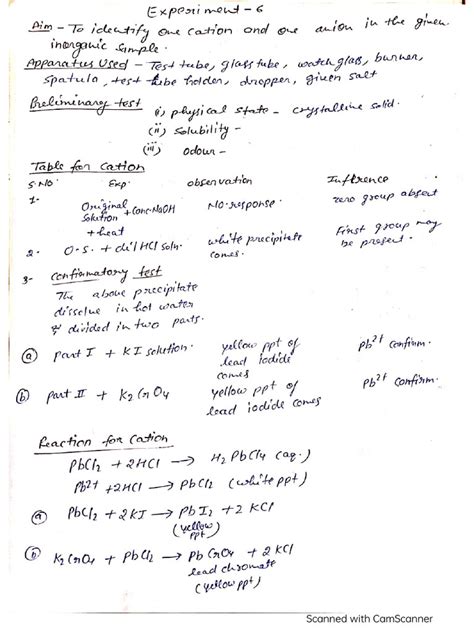 Experiment - 6
Aim - To identify one cation and one anion in the given
inorganic sample.
Apparatus Used - Test tube, glass tube, watch glass, burner,
spatula, test tube holder, dropper, given salt
Preliminary test (i) physical state - crystalline solid.
(ii) Solubility -
(iii) odour -
Table for cation
S.No. Exp. observation Inference
1- Original solution + Conc. NaOH + heat No response. zero group absent
2. O.S. + dil HCl soln. white precipitate comes. First group may be present.
3- Confirmatory test
The above precipitate
dissolve in hot water
& divided in two parts.
(a) part I + KI solution. yellow ppt of lead iodide comes Pb2+ confirm.
(b) part II + K2CrO4 yellow ppt of lead iodide comes Pb2+ confirm.
Reaction for Cation
PbCl2 + 2HCl → H2PbCl4 (aq.)
Pb2+ + 2HCl → PbCl2 (white ppt)
(a) PbCl2 + 2KI → PbI2 + 2KCl
(yellow ppt)
(b) K2CrO4 + PbCl2 → PbCrO4 + 2KCl
lead chromate
(yellow ppt)
Scanned with CamScanner